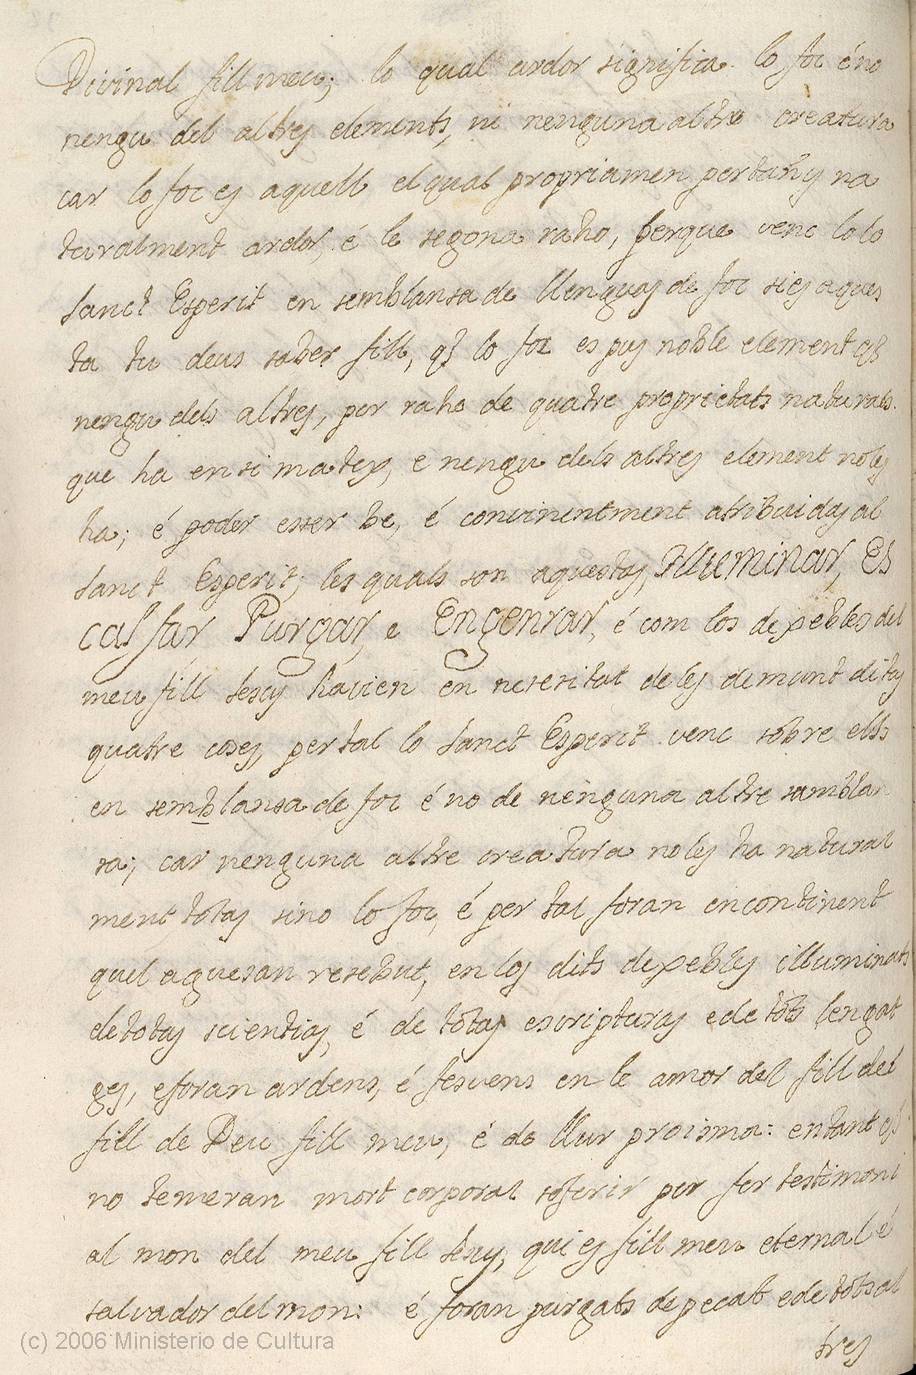 Divinal fill meu; lo qual ardor significa lo foc é no
nengu del altres elements, ni nenguna altre creatura
car lo foc es aquell el qual propriamen pertañy na
turalment ardor, é le segona raho, perque venc lo lo
Sanct Esperit en semblansa de llenguas de foc si es aques
ta tu deus saber fill, q̃ lo foc es pus noble element q̃
nengu dels altres, per raho de quatre proprietats naturals
que ha en si mateys, e nengu dels altres element noles
ha; é poder esser be, é convinentment atribuidas al
Sanct Esperit; les quals son aquestas, Illuminar, Es
calfar Purgar, e Engenrar, é com los dexebles del
meu fill Jesus havien en neseritat de les demunt ditas
quatre coses, per tal lo Sanct Esperit venc sobre ells
en semblansa de foc é no de nenguna altre samblan
sa; car nenguna altre creatura noles ha natural
ment totas sino lo foc, é per tal foran encontinent
quel aguesan resebut, en los dits dexebles illuminats
de totas scientias, é de totas escripturas e de tots lengat
ges, e foran ardens, é fervens en le amor del fill del
fill de Deu fill meu, é de llur proisma: entant q̃
no temeran mort corporal soferir per fer testimoni
al mon del meu fill Jesus, qui es fill meu eternal é
salvador del mon: é foran purgats de pecat e de tots al
tres
(c) 2006 Ministerio de Cultura